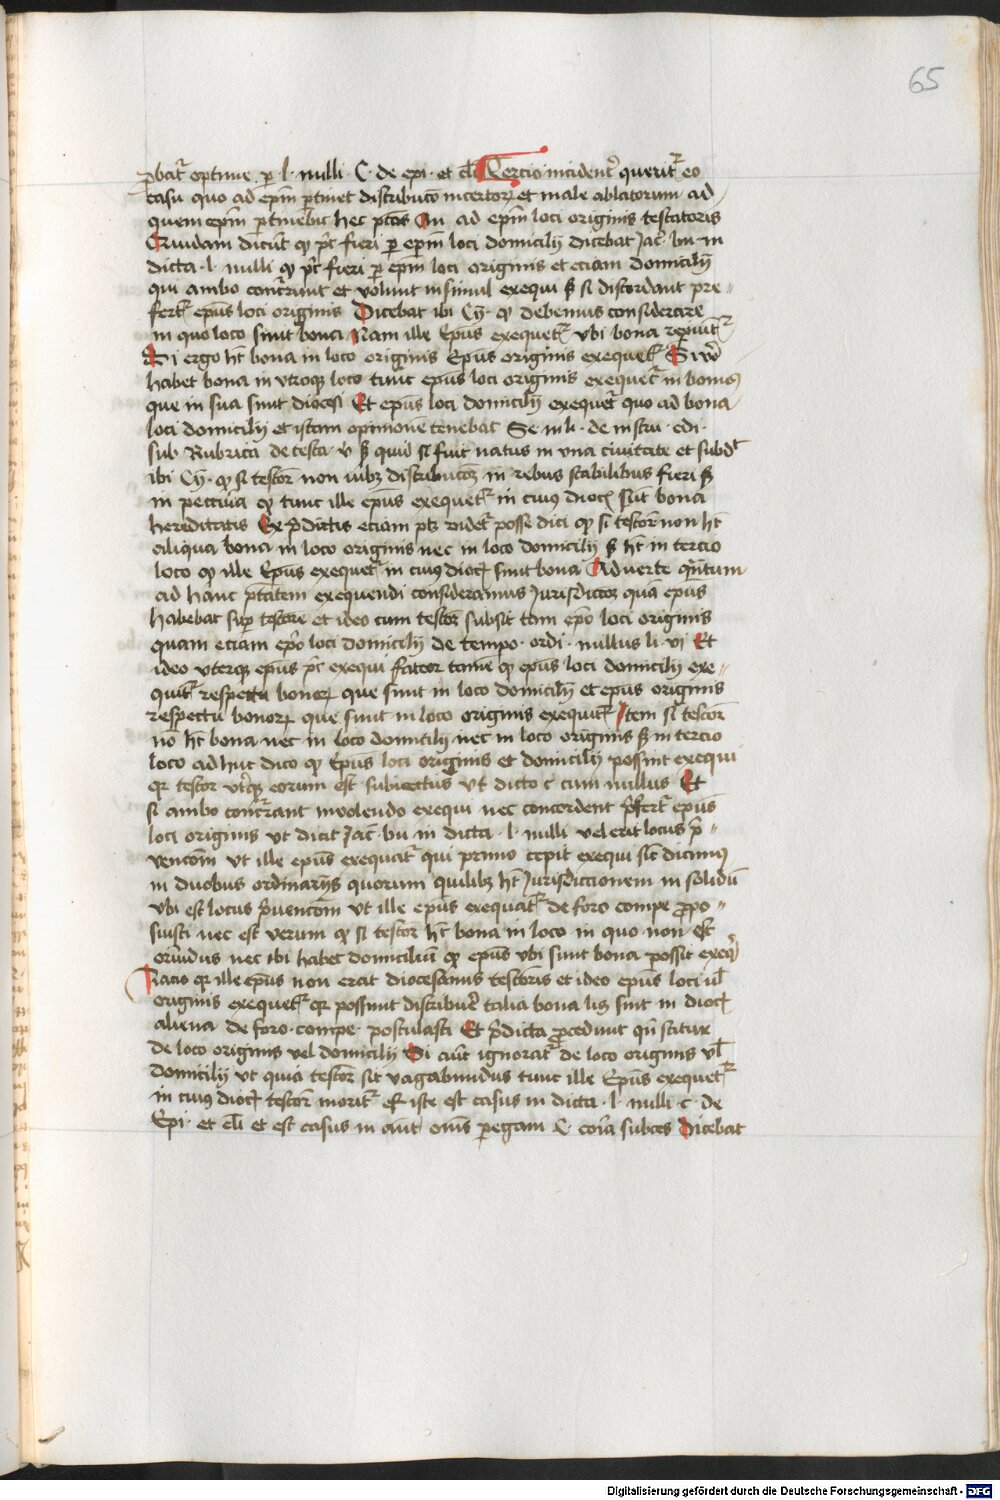 65
ꝓbat᷑ optime p l nulli · C · de epi · et cl̄i Tercio incident᷑ querit᷑ eo
casu quo ad ep̄m ꝑtinet distribucō incertoꝝ et male ablatorum ad
quem ep̄m ꝑtinebit hec ptās An ad ep̄m loci originis testatoris
Quidam dicūt ꝙ pt᷑ fieri ꝑ ep̄m loci domicilij dicebat Jac · bu · in
dicta · l · nulli ꝙ pt᷑ fieri ꝑ ep̄m loci originis et eciam domicilij
qui ambo concurrunt et volunt insimul exequi sꝫ si discordant pre-
fert᷑ ep̄us loci originis Dicebat ibi Cy · ꝙ debemus considerare
in quo loco sint bona Nam ille Ep̄us exequet᷑ vbi bona reꝑiunt᷑
Si ergo ht̄ bona in loco originis Ep̄us originis exequet᷑ Si v̄o
habet bona in vtroqꝫ loco tunc ep̄us loci originis exequet᷑ in bonis
que in sua sunt diocesi Et ep̄us loci domicilij exequet᷑ quo ad bona
loci domicilij et istam opinionē tenebat Spe in ti · de instru · edi ·
sub Rubrica de testa · v̄ sꝫ quid si fuit natus in vna ciuitate et subd᷑
ibi Cy · ꝙ si testor̄ non iubꝫ distribucōꝫ in rebus stabilibus fieri sꝫ
in peccunia ꝙ tunc ille ep̄us exequet᷑ in cuius dioc̄ sūt bona
hereditatis Ex p̄dictis eciam ptꝫ videt᷑ posse dici ꝙ si testor̄ non ht̄
aliqua bona in loco originis nec in loco domicilij sꝫ ht̄ in tercio
loco ꝙ ille Ep̄us exequet᷑ in cuius dioc̄ sint bona Aduerte qn̄tum
ad hanc ptātem exequendi consideramus Jurisdictōꝫ quā ep̄us
habebat sup̄ testorē et ideo cum testor̄ subsit tam ep̄o loci originis
quam etiam ep̄o loci domicilij de tempo · ordi · nullus li · vj Et
ideo vterqꝫ ep̄us pt᷑ exequi fateor tamē ꝙ ep̄us loci domicilij exe-
quit᷑ respectu bonoꝝ que sunt in loco domicilij et ep̄us originis
respectu bonoꝝ que sunt in loco originis exequit᷑ Item si testor̄
nō ht̄ bona nec in loco domicilij nec in loco originis sꝫ in tercio
loco ad huc dico ꝙ Ep̄us loci originis et domicilij possint exequi
qꝛ testor vtriqꝫ eorum est subiectus vt dicto c cum nullus Et
si ambo concurrant in volendo exequi nec concordent p̄fert᷑ ep̄us
loci originis vt dicit Jac · bu in dicta · l · nulli vel erit locus p̄-
uencōni vt ille ep̄us exequat᷑ qui primo cepit exequi sic dicimus
in duobus ordinarijs quorum quilibꝫ ht̄ Jurisdiccionem in solidū
vbi est locus p̄uencōni vt ille ep̄us exequat᷑ de foro compe ꝓpo-
suisti nec est verum ꝙ si testor̄ ht̄ bona in loco in quo non est
oriūdus nec ibi habet domiciliū ꝙ ep̄us vbi sunt bona possit exeq̄
Racio qꝛ ille ep̄us non erat diocesanus testoris et ideo ep̄us loci vl̄
originis exequet᷑ qꝛ possunt distribuē talia bona lic̄ sint in dioc̄
aliena de foro · compe · postulasti Et p̄dicta ꝓcedunt qn̄ scitur
de loco originis vel domicilij Si aūt ignorat᷑ de loco originis vl̄
domicilij vt quia testor̄ sit vagabundus tunc ille Ep̄us exequet᷑
in cuius dioc̄ testor̄ morit᷑ Et iste est casus in dicta · l · nulli · c · de
Epi · et cl̄i et est casus in aūt om̄s ꝑegrini C · cōia succes Dicebat
Digitalisierung gefördert durch die Deutsche Forschungsgemeinschaft - DFG